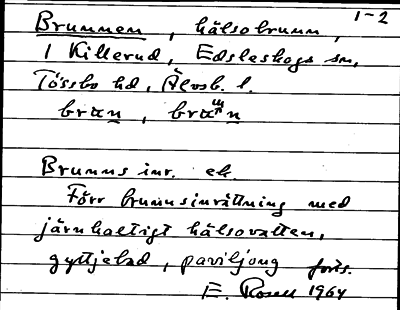 1-2
Brunnen, hälsobrunn,
1 Killerud, Edsleskogs sn,
Tössbo hd, Älvsb. l.
Brunns inr. ek.
Förr brunnsinrättning med
järnhaltigt hälsovatten,
gyttjebad, paviljong forts.
E. Rosell 1964